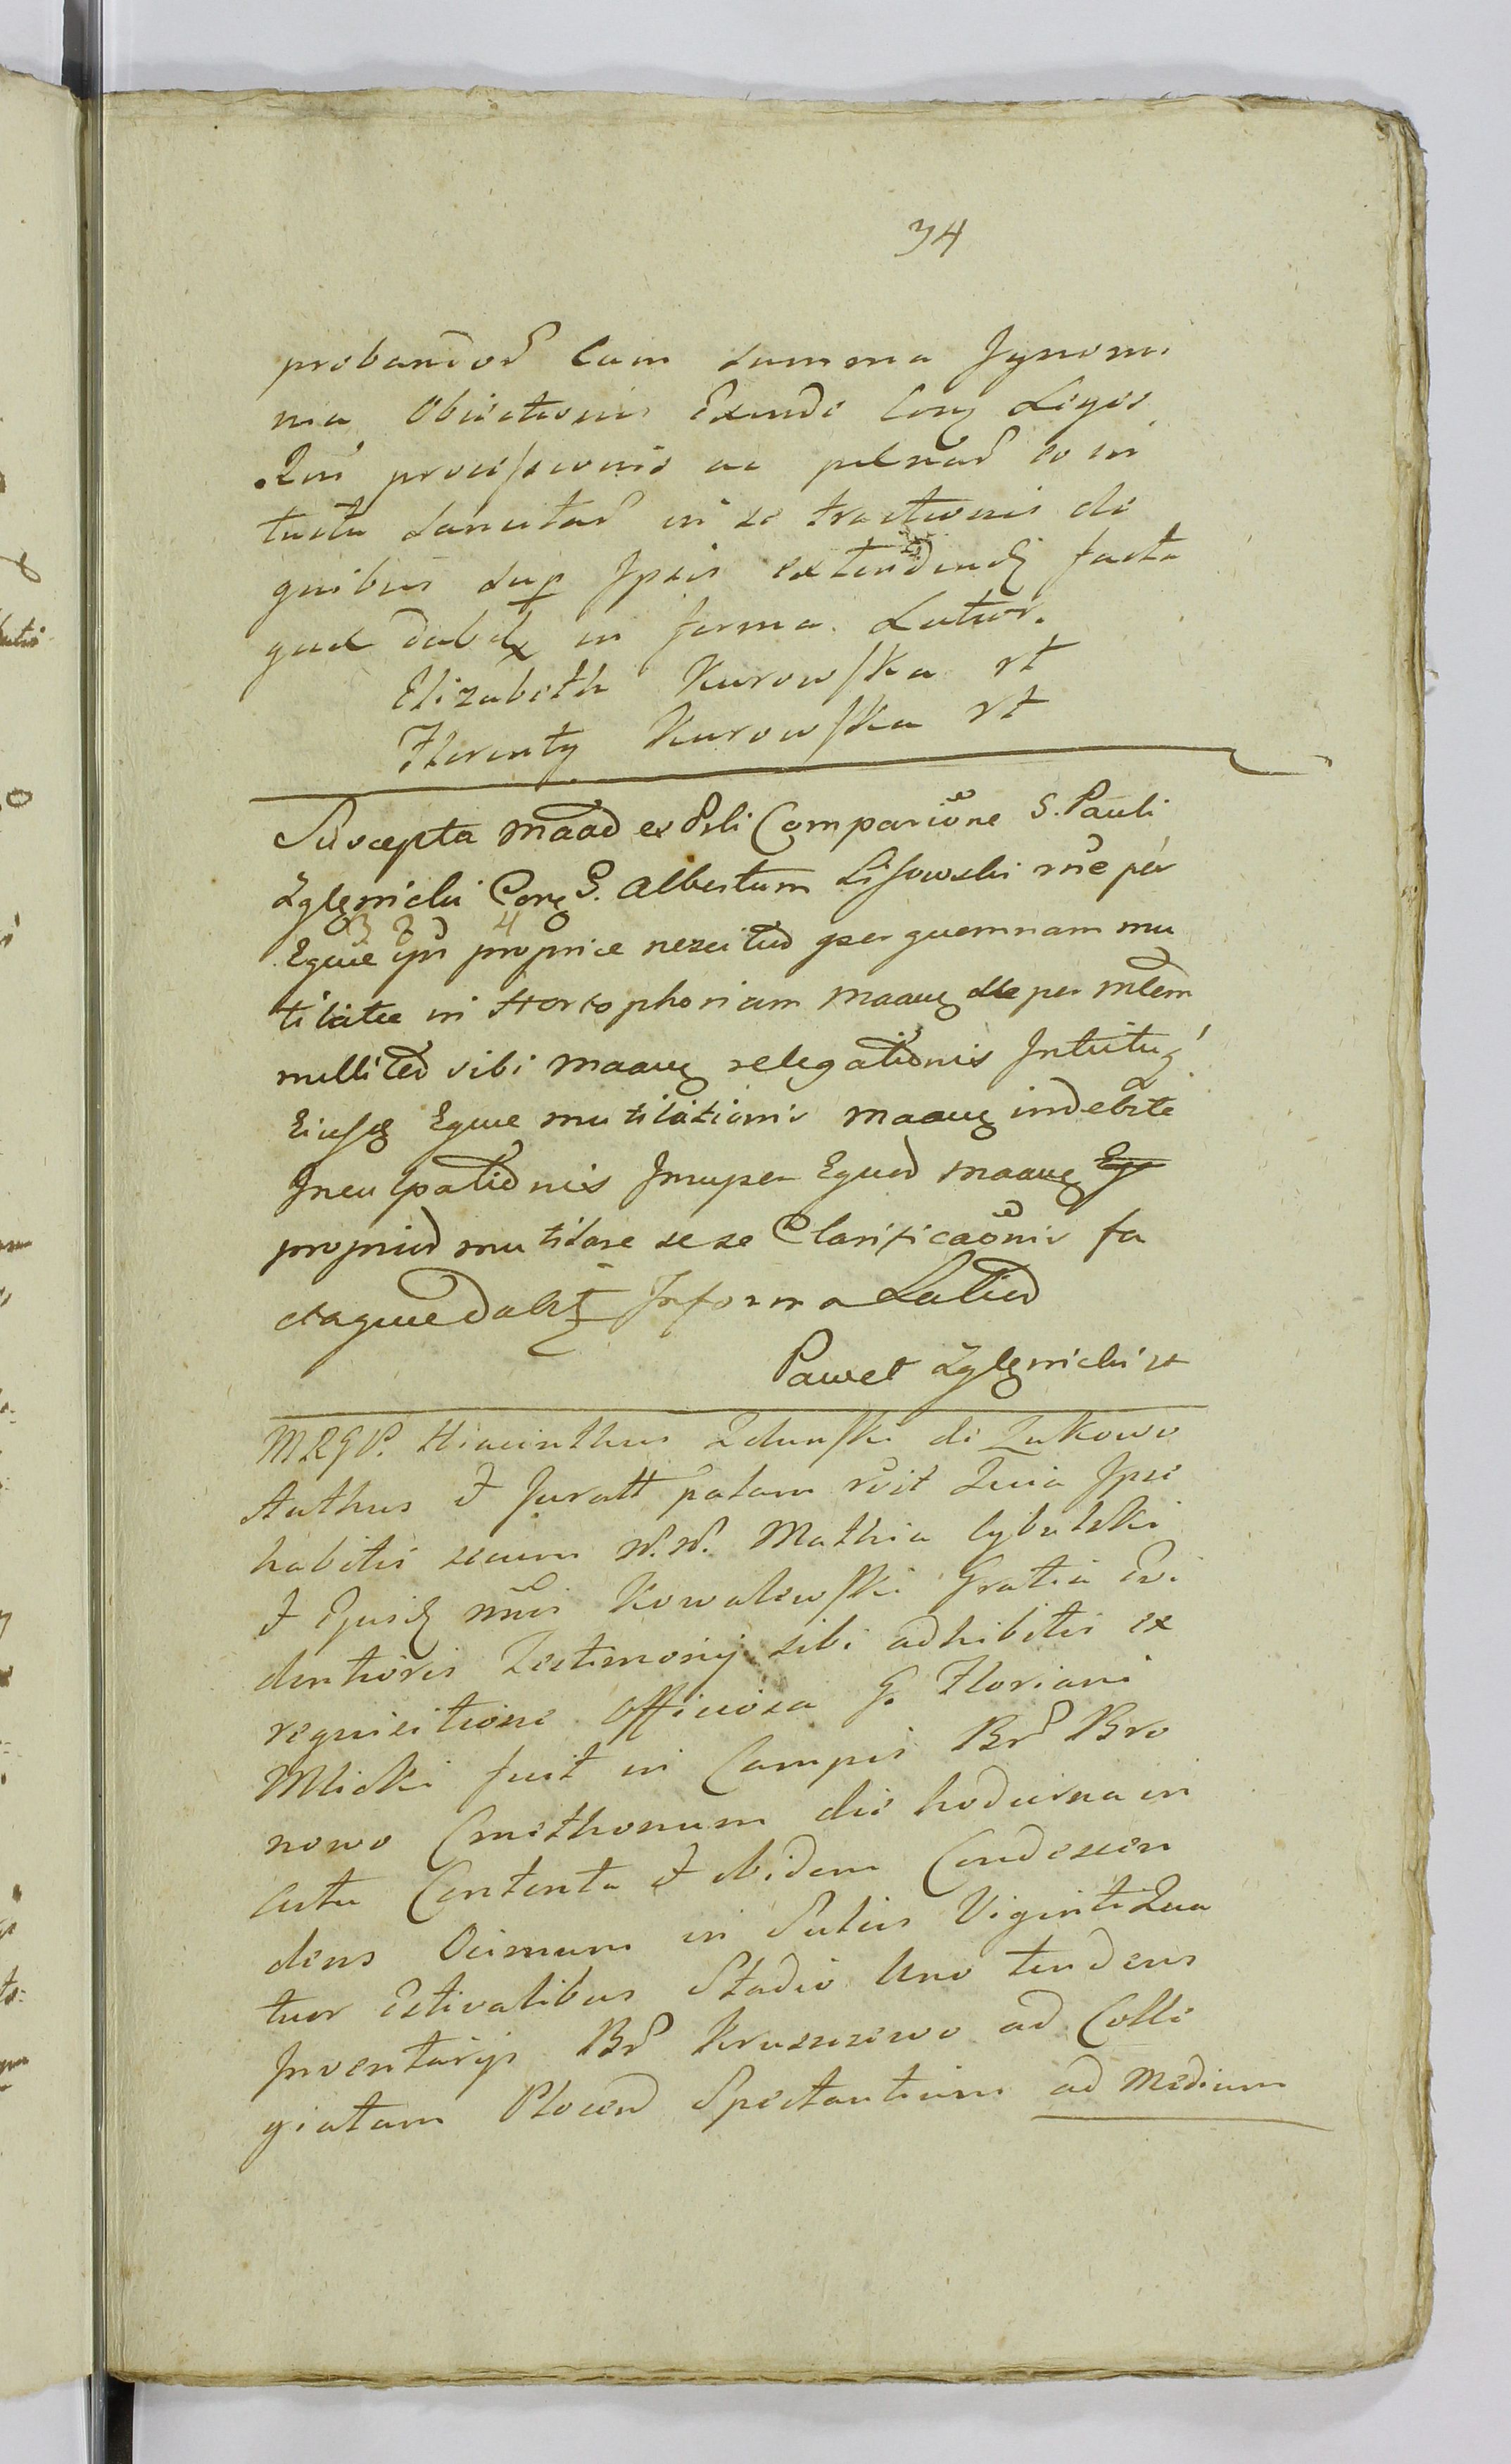 34
probandor Cum summa Jgnomi
nia Obiectionis Exinde Conq Leges
Rni processionis ac pœnar eo in
tuitu sancitar in se tractionis de
quibus sup Ipsis extendendi facta
quæ dabitx in forma Latior.
Elizabeth Kurowska rt
Florenty Kurowska rt
Suscepta Maad ex Prli Comparione S. Pauli
Zglenicki Conq G. Albertum Lisowski rne per
3 2 4
Eque ipi propriæ nescitur per quemnam mu
tilatæ in Horcophoriam Maaue de per Mlem
mellitor sibi Maaue relegationis Intuituq
Eiusq Eque mutilationis Maaue indebite
Inculpationis Insuper Equor Maaue Eq
propriur mutilare se se Clarificaonis fa
ctaque dabit Jnforma Latiur
Paweł Zglenicki rt
MRGP. Hiacinthus Zdunski de Zukowo
Authus & Juratt palam roit Quia Ipse
habitis secum N. N. Mathia Cybulski
& Ejusd nris Kowalewski Gratia Evi
dentioris Testimonij sibi adhibitis ex
requisitione Officiosa G. Floriani
Mlicki fuit in Campis Br Bro
nowo Cmethonum die hodierna in
Actu Contenta & ibidem Condescen
dens Ocimum in Sulcis Viginti Qua
tuor Estivalibus Stadio Uno tendens
Inventarijs Br Kruszczewo ad Colle
giatam Plocen Spectantium ad Medium